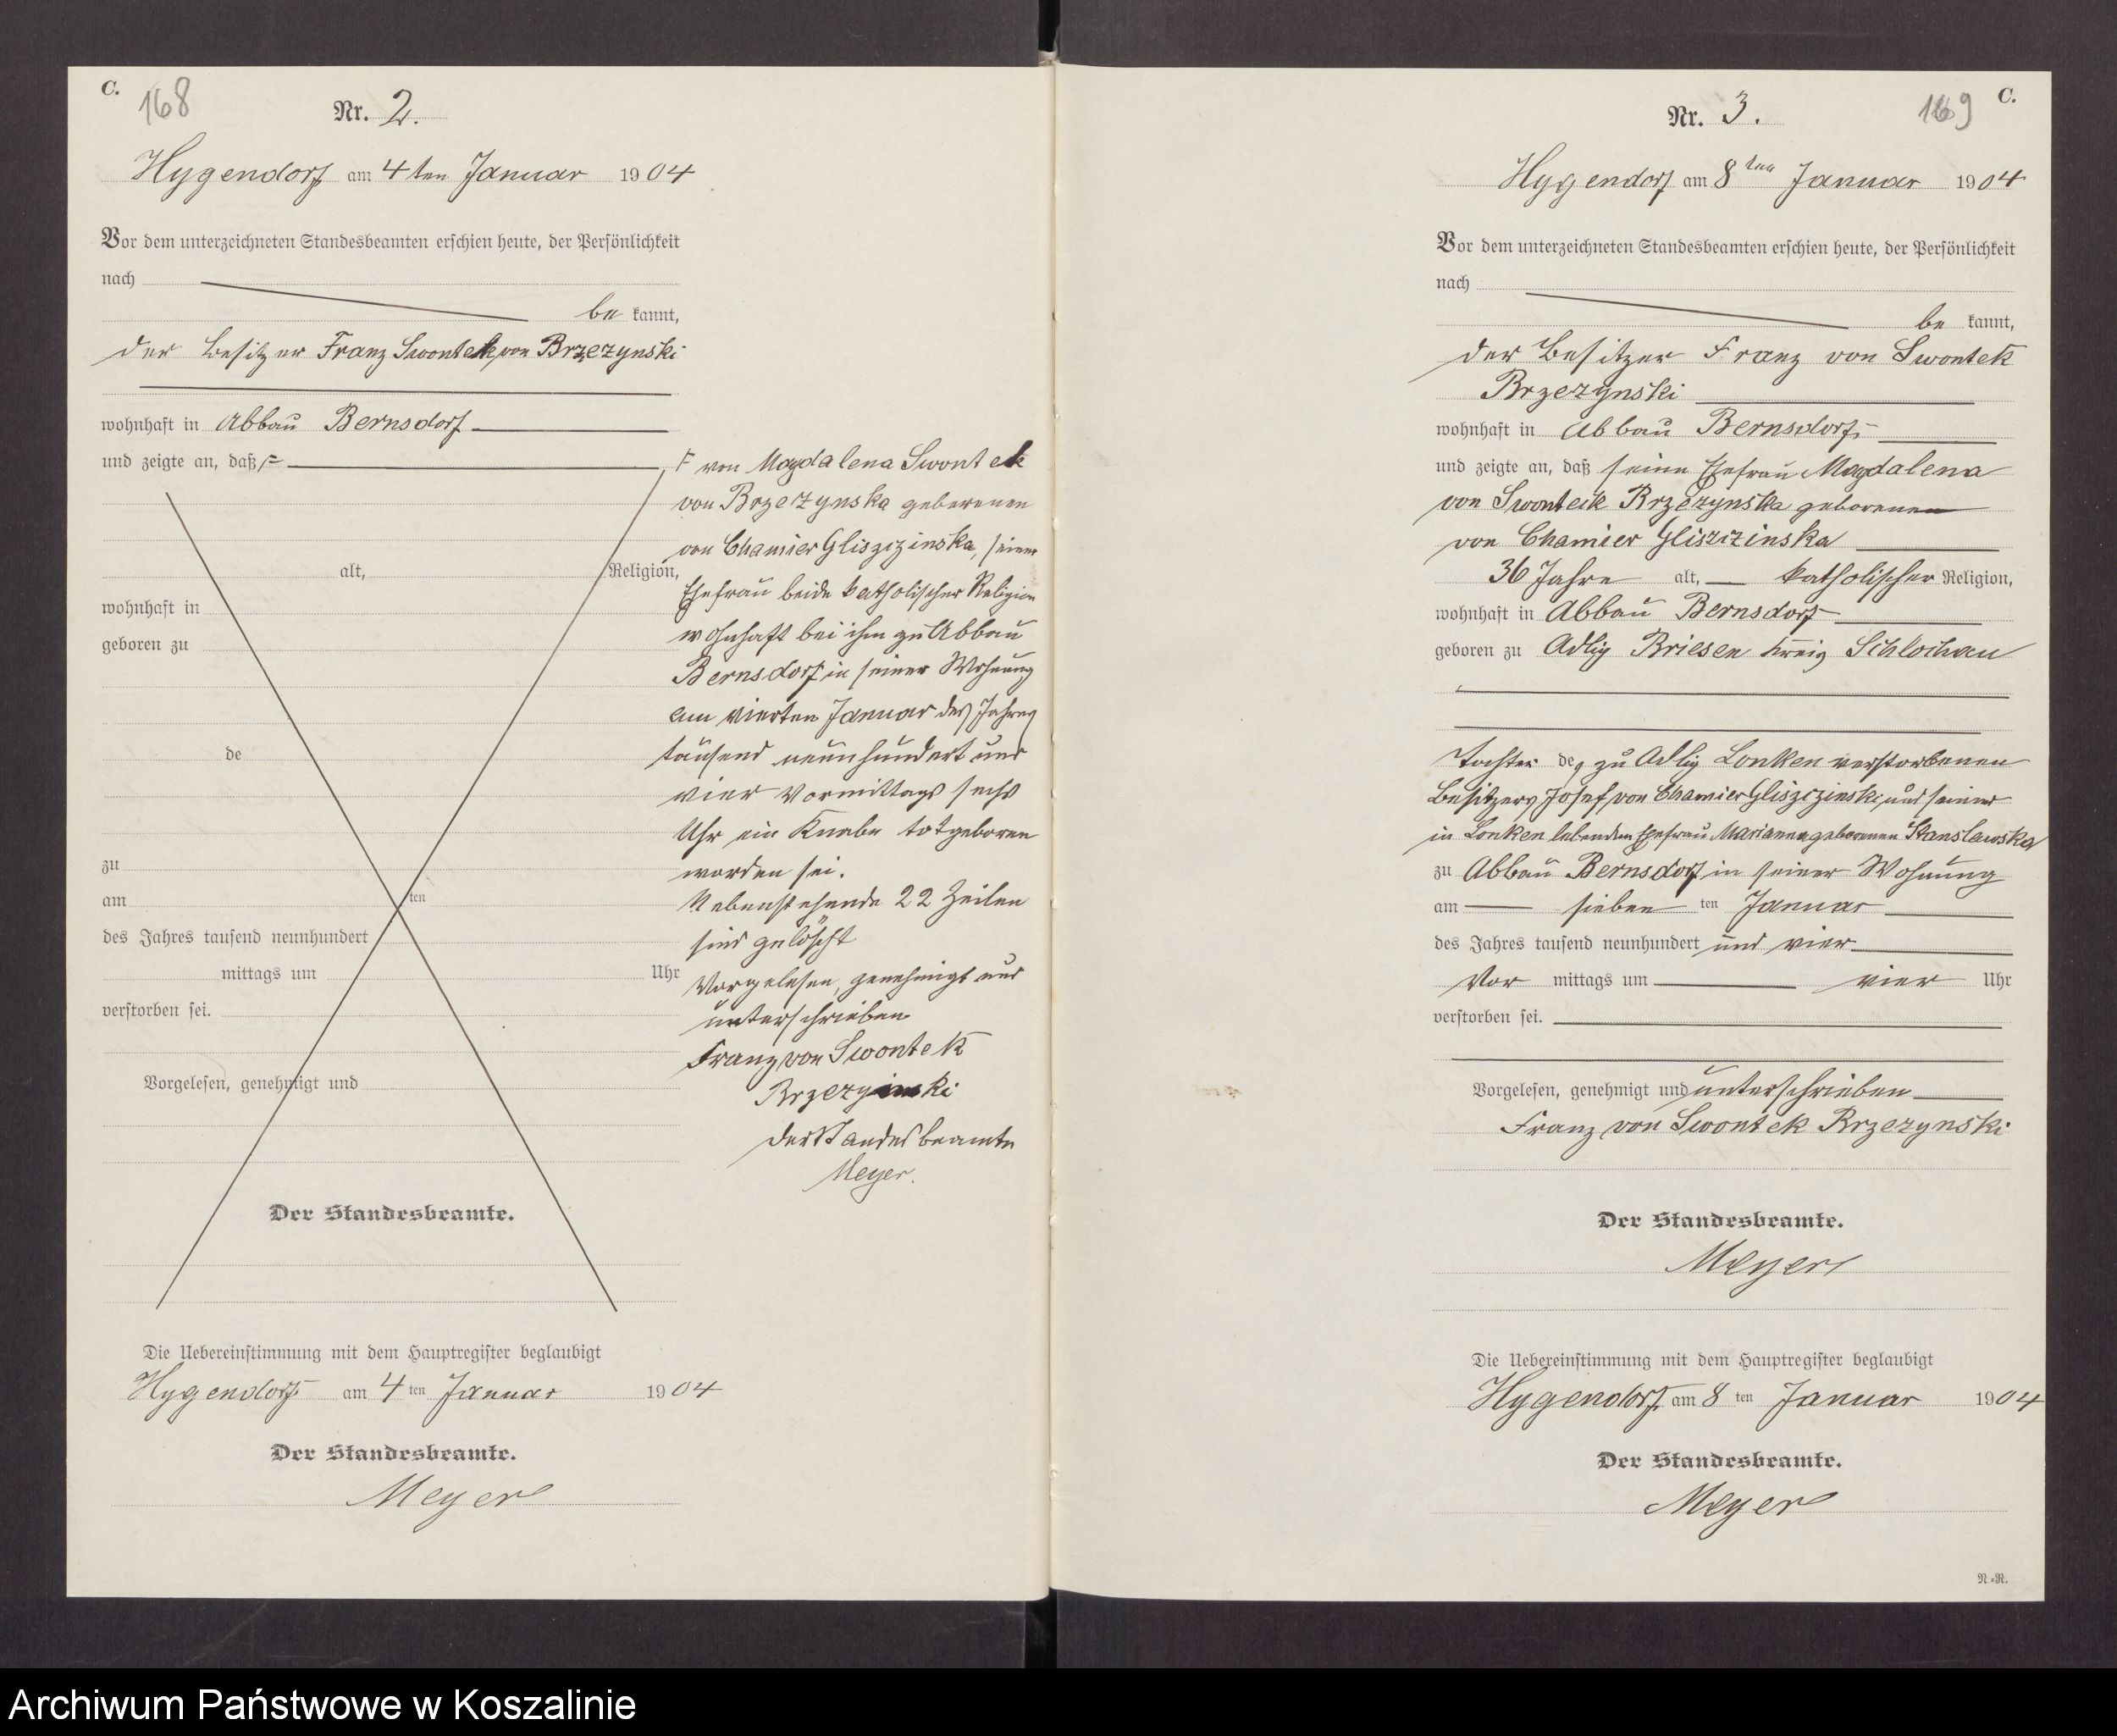 C.
168
Nr. 2.
Hygendorf am 4ten Januar 1904
Vor dem unterzeichneten Standesbeamten erschien heute, der Persönlichkeit
nach
be kannt,
der Besitzer Franz Swontek von Brzezynski
wohnhaft in Abbau Bernsdorf
und zeigte an, daß F
alt, Religion,
wohnhaft in
geboren zu
de
zu
am ten
des Jahres tausend neunhundert
mittags um Uhr
verstorben sei.
Vorgelesen, genehmigt und
Der Standesbeamte.
F von Magdalena Swontek
von Brzezynska geborenen
von Chamier Gliszczinska, seiner
Ehefrau beide katholischer Religion
wohnhaft bei ihm zu Abbau
Bernsdorf in seiner Wohnung
am vierten Januar des Jahres
tausend neunhundert und
vier Vormittags sechs
Uhr ein Knabe totgeboren
worden sei.
Nebenstehende 22 Zeilen
sind gelöscht
Vorgelesen, genehmigt und
unterschrieben
Franz von Swontek
Brzezynski
Der Standesbeamte
Meyer.
Die Uebereinstimmung mit dem Hauptregister beglaubigt
Hygendorf am 4 ten Januar 1904
Der Standesbeamte.
Meyer
C.
169
Nr. 3.
Hygendorf am 8ten Januar 1904
Vor dem unterzeichneten Standesbeamten erschien heute, der Persönlichkeit
nach
be kannt,
der Besitzer Franz von Swontek
Brzezynski
wohnhaft in Abbau Bernsdorf
und zeigte an, daß seine Ehefrau Magdalena
von Swontek Brzezynska geborenen
von Chamier Gliszczinska
36 Jahre alt, katholischer Religion,
wohnhaft in Abbau Bernsdorf
geboren zu Adlig Briesen Kreis Schlochau
Tochter des zu Adlig Lonken verstorbenen
Besitzers Josef von Chamier Gliszczinski und seiner
in Lonken lebenden Ehefrau Marianna geborenen Stanslawska
zu Abbau Bernsdorf in seiner Wohnung
am sieben ten Januar
des Jahres tausend neunhundert und vier
Vor mittags um vier Uhr
verstorben sei.
Vorgelesen, genehmigt und unterschrieben
Franz von Swontek Brzezynski
Der Standesbeamte.
Meyer
Die Uebereinstimmung mit dem Hauptregister beglaubigt
Hygendorf am 8 ten Januar 1904
Der Standesbeamte.
Meyer
N=R.
Archiwum Państwowe w Koszalinie